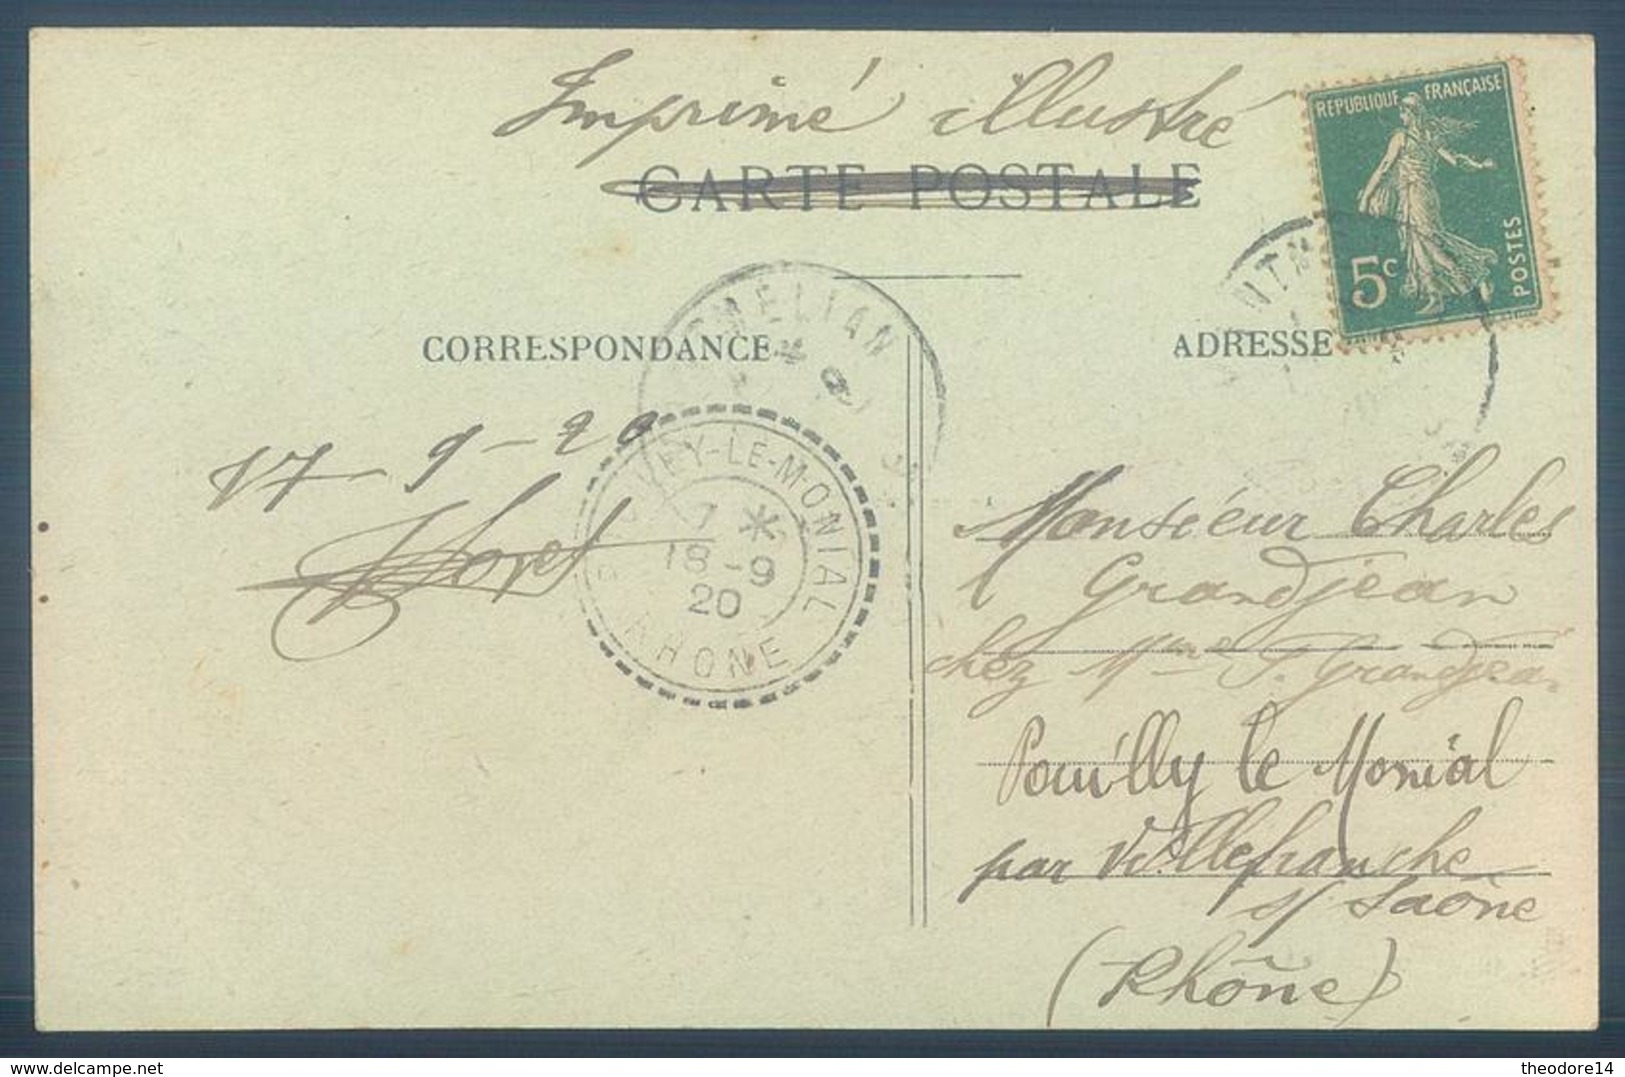 Imprimé illustré
CARTE POSTALE
REPUBLIQUE FRANÇAISE
5c
POSTES
MELIAN
CORRESPONDANCE
ADRESSE
17-9-20
EY-LE-MONIAL
7 *
18-9
20
RHONE
Monsieur Charles
Grandjean
chez Mme
Pouilly le Monial
par Villefranche
s/ Saône
(Rhône)
delcampe.net
theodore14